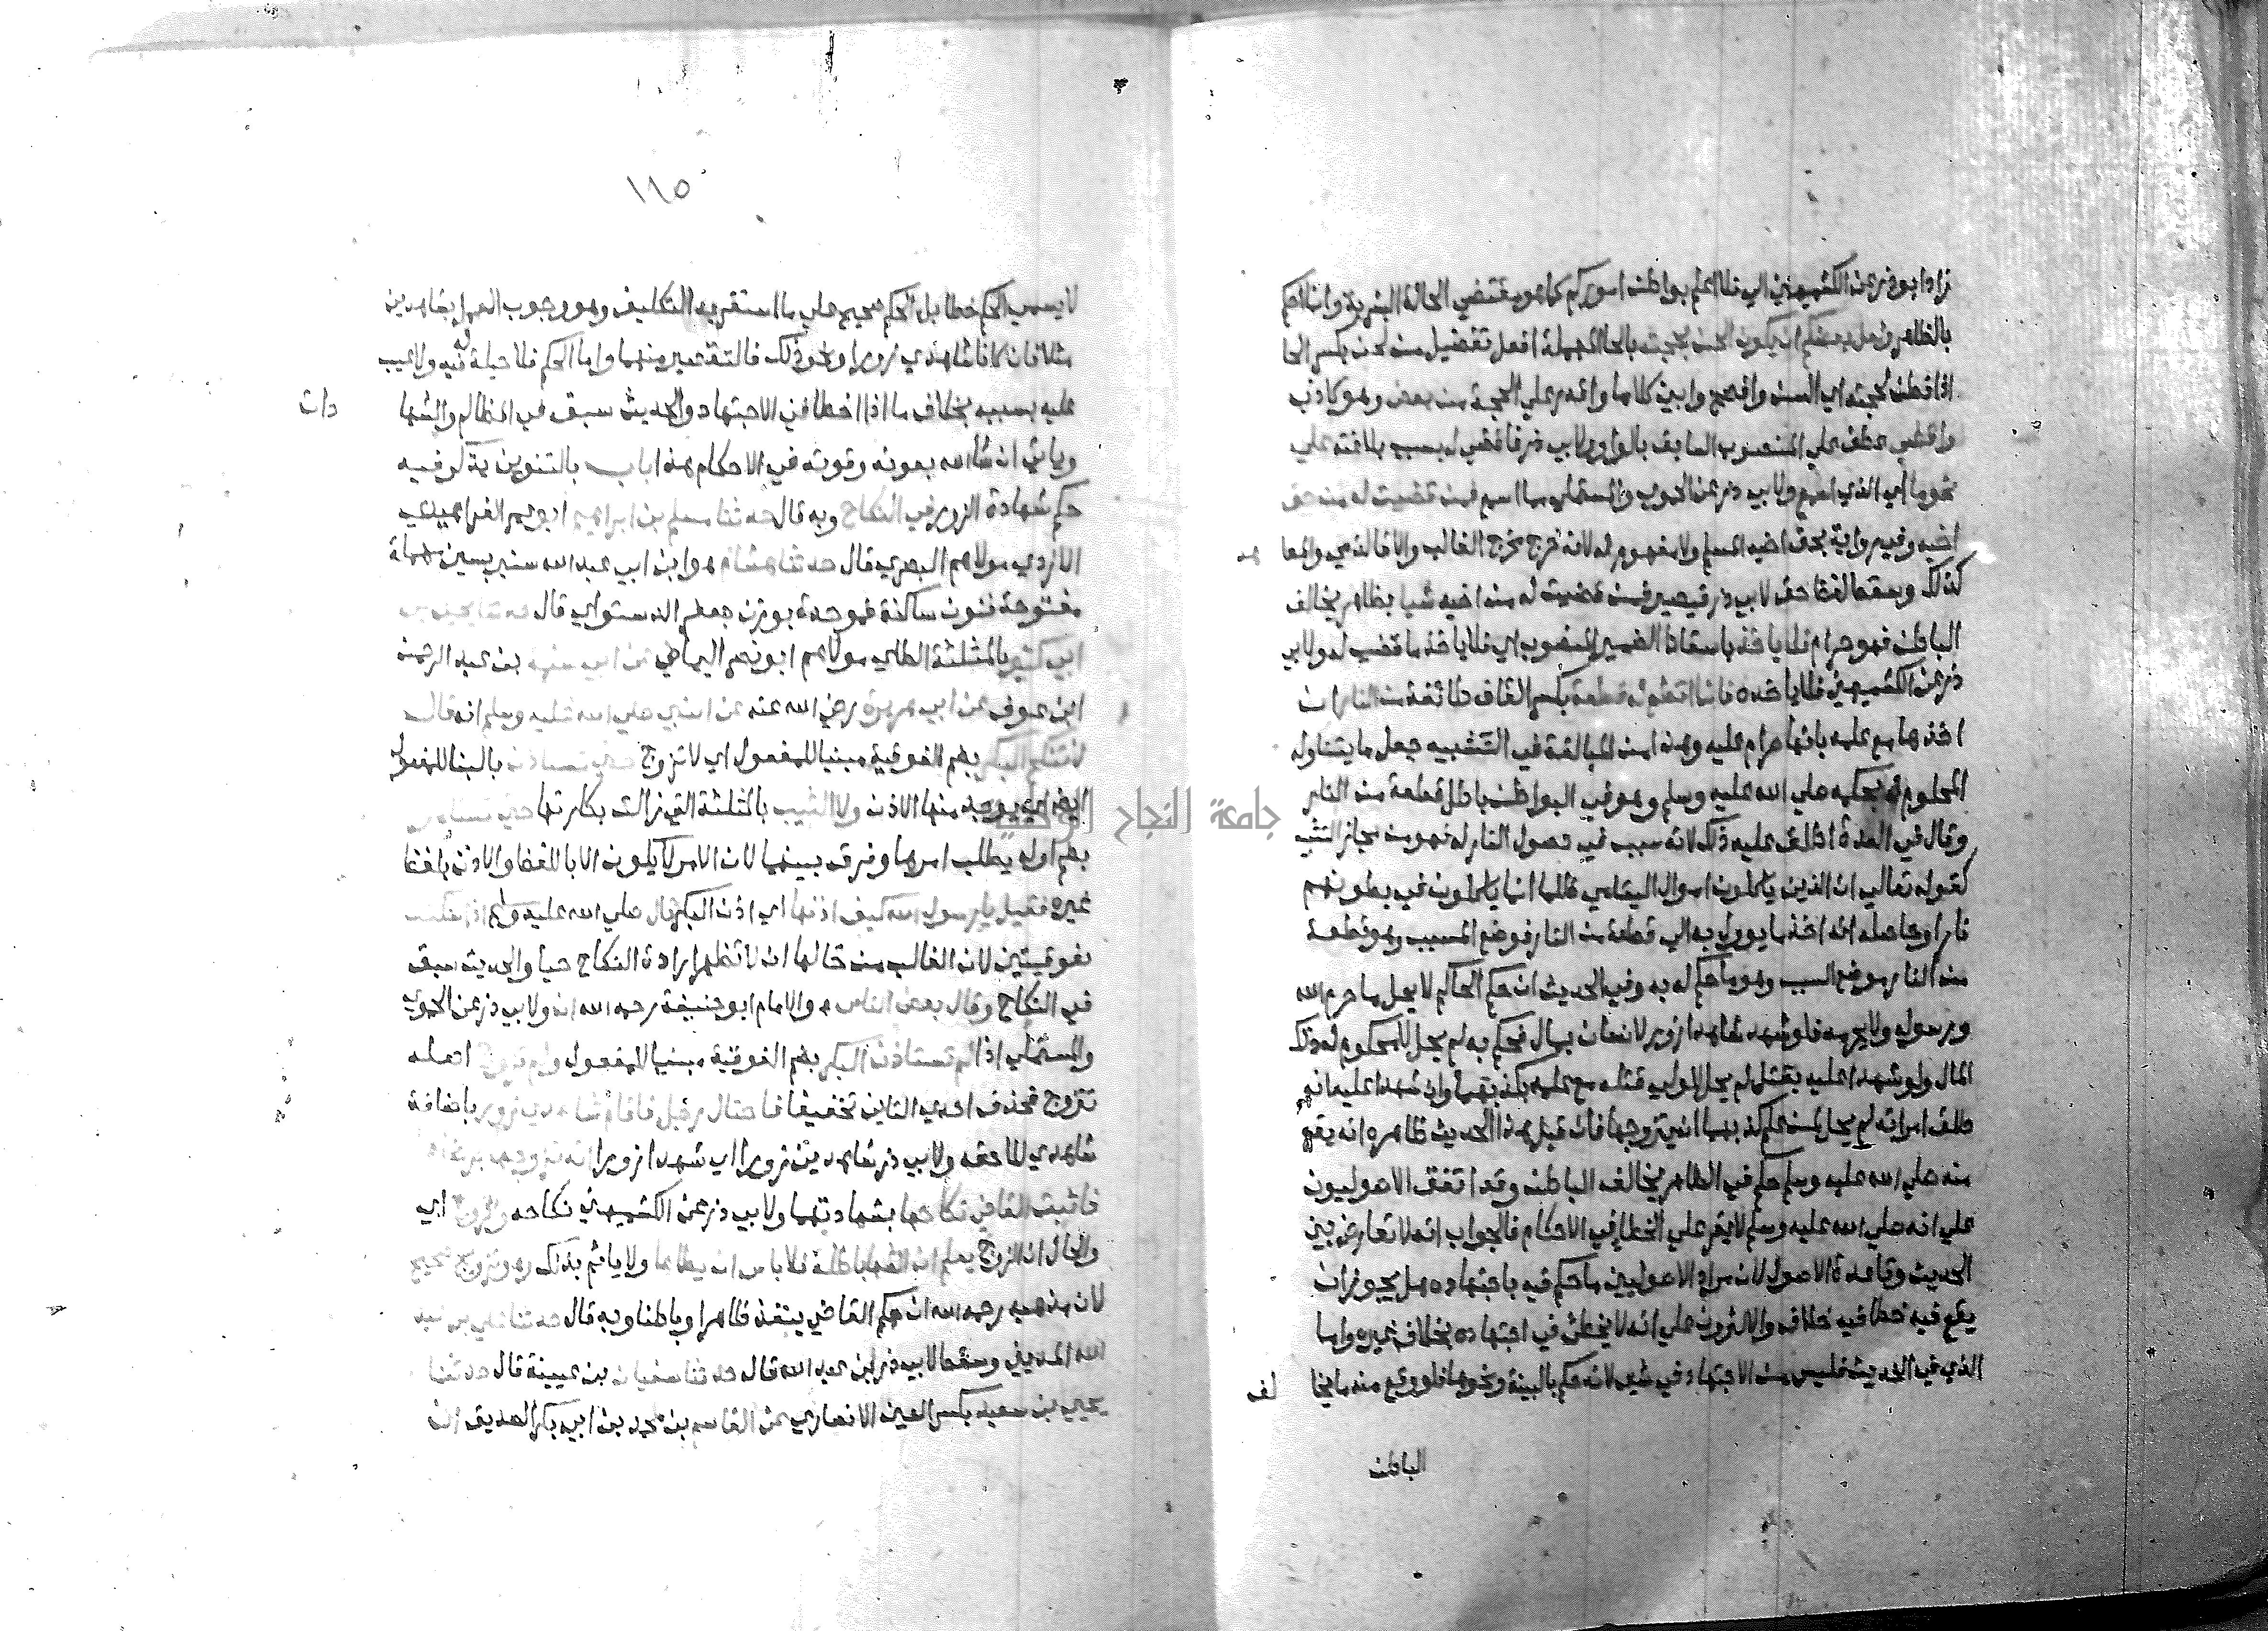 زاد ابو ذر عن الكشميهني الي فلا اعلم بواطن اموركم كما هو مقتضي الحالة البشرية وانما احكم
بالظاهر ولعل بعضكم ان يكون الحن بحجته بالحا المهملة افعل تفضيل من لحن بكسر الحا
اذا فطن لحجته اي السن وافصح وابين كلاما واقدر علي الحجة من بعض وهو كاذب
واقضي عطف علي المنصوب السابق بالواو ولابي ذر فاقضي له بسبب بلاغته علي
نحو ما اي الذي اسمع ولابي ذر عن الحموي والمستملي مما اسمع فمن قضيت له من حق
اخيه وفي رواية بحق اخيه المسلم ولا مفهوم له لانه خرج مخرج الغالب والا فالذمي والمعا
هد
كذلك وسقط لفظ حق لابي ذر فيصير فمن قضيت له من اخيه شيا بظاهر يخالف
الباطن فهو حرام فلا ياخذ باسقاط الضمير المنصوب اي فلا ياخذ ما قضيت له ولابي
ذر عن الكشميهني فلا ياخذه فانما اقطع له قطعة بكسر القاف طائفة من النار ان
اخذها مع علمه بانها حرام عليه وهذا من المبالغة في التشبيه جعل ما يتناوله
المحكوم له بحكمه صلي الله عليه وسلم وهو في البواطن باطل قطعة من النار
وقال في العدة اطلق عليه ذلك لانه سبب في حصول النار له فهو من مجاز التشبيه
كقوله تعالي ان الذين ياكلون اموال اليتامي ظلما انما ياكلون في بطونهم
نارا وحاصله انه اخذ ما يوول به الي قطعة من النار فوضع المسبب وهو قطعة
من النار موضع السبب وهو ما حكم له به وفي الحديث ان حكم الحاكم لا يحل ما حرم الله
ورسوله ولا يحرمه فلو شهد شاهدا زور لانسان بمال فحكم به لم يحل للمحكوم له ذلك
المال ولو شهدا عليه بقتل لم يحل للولي قتله مع علمه بكذبهما وان شهدا عليه انه
طلق امراته لم يحل لمن علم كذبهما ان يتزوجها فان قيل هذا الحديث ظاهره انه يقع
منه صلي الله عليه وسلم حكم في الظاهر يخالف الباطن وقد اتفق الاصوليون
علي انه صلي الله عليه وسلم لا يقر علي الخطا في الاحكام فالجواب انه لا تعارض بين
الحديث وقاعدة الاصول لان مراد الاصوليين ما حكم فيه باجتهاده هل يجوز ان
يقع فيه خطا فيه خلاف والاكثرون علي انه لا يخطئ في اجتهاده بخلاف غيره واما
الذي في الحديث فليس من الاجتهاد في شي لانه حكم بالبينة ونحوها فلو وقع منه ما يخا
لف
الباطن
١١٥
لا يسمي الحكم خطا بل الحكم صحيح علي ما استقر به التكليف وهو وجوب العمل بشاهدين
مثلا فان كانا شاهدي زور او نحو ذلك فالتقصير منهما واما الحكم فلا حيلة له فيه ولا عيب
عليه بسببه بخلاف ما اذا اخطا في الاجتهاد والحديث سبق في المظالم والشها
دات
وياتي ان شا الله بعونه وقوته في الاحكام هذا باب بالتنوين يذكر فيه
حكم شهادة الزور في النكاح وبه قال حدثنا مسلم بن ابراهيم ابو عمرو الفراهيدي
الازدي مولاهم البصري قال حدثنا هشام هو ابن ابي عبد الله سنبر بسين مهملة
مفتوحة فنون ساكنة فموحدة بوزن جعفر الدستوائي قال حدثنا يحيي بن
ابي كثير بالمثلثة الطائي مولاهم ابو نصر اليمامي عن ابي سلمة بن عبد الرحمن
ابن عوف عن ابي هريرة رضي الله عنه عن النبي صلي الله عليه وسلم انه قال
لا تنكح البكر بضم الفوقية مبنيا للمفعول اي لا تزوج حتي تستاذن بالبنا للمفعول
ايضا اي يوجد منها الاذن ولا الثيب بالمثلثة التي زالت بكارتها حتي تستامر
بضم اوله يطلب امرها وفرق بينهما لان الامر لا يكون الا باللفظ والاذن بلفظ
غيره فقيل يا رسول الله كيف اذنها اي اذن البكر قال صلي الله عليه وسلم اذا سكتت
بفوقيتين لان الغالب من حالها ان لا تظهر ارادة النكاح حيا والحديث سبق
في النكاح وقال بعض الناس هو الامام ابو حنيفة رحمه الله ان ولابي ذر عن الحموي
والمستملي اذا لم تستاذن البكر بضم الفوقية مبنيا للمفعول ولم تزوج اصله
تتزوج فحذف احدي التائين تخفيفا فاحتال رجل فاقام شاهدي زور باضافة
شاهدي للاحقه ولابي ذر شاهدين زورا اي شهدا زورا انه تزوجها برضاها
فاثبت القاضي نكاحها بشهادتهما ولابي ذر عن الكشميهني نكاحه والزوج اي
والحال ان الزوج يعلم ان الشهادة باطلة فلا باس ان يطاها ولا ياثم بذلك وهو تزويج صحيح
لان مذهبه رحمه الله ان حكم القاضي ينفذ ظاهرا وباطنا وبه قال حدثنا علي بن عبد
الله المديني وسقط لابي ذر ابن عبد الله قال حدثنا سفيان بن عيينة قال حدثنا
يحيي بن سعيد بكسر العين الانصاري عن القاسم بن محمد بن ابي بكر الصديق ان
جامعة النجاح الوطنية